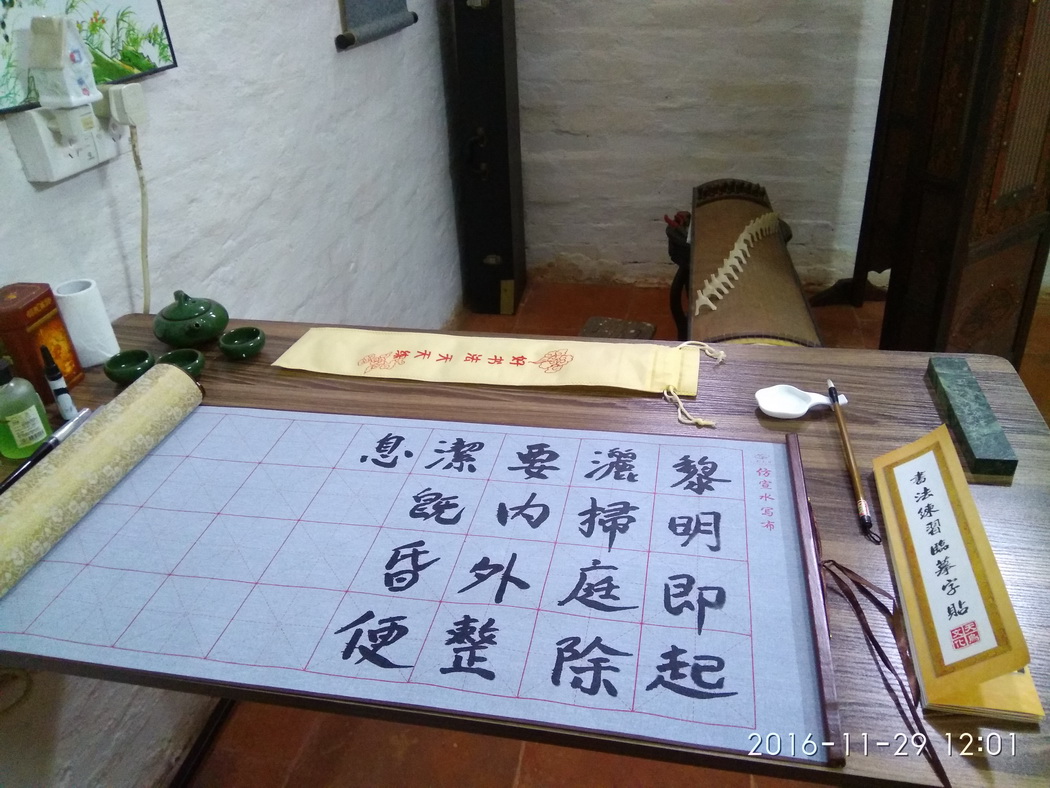 仿宣水写布
黎明即起
灑掃庭除
要内外整
潔既昏便
息
好书法天天练
书法練習臨摹字貼
2016-11-29 12:01